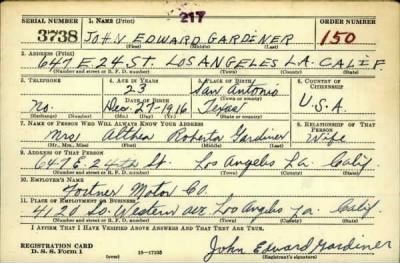 217
SERIAL NUMBER 1. NAME (Print) ORDER NUMBER
3738 JOHN EDWARD GARDINER 150
(First) (Middle) (Last)
2. ADDRESS (Print)
647 E. 24 ST. LOS ANGELES L.A. CALIF.
(Number and street or R. F. D. number) (Town) (County) (State)
3. TELEPHONE 4. AGE IN YEARS 5. PLACE OF BIRTH 6. COUNTRY OF CITIZENSHIP
23 San Antonio
DATE OF BIRTH (Town or county)
No. Dec. 27-1916 Texas U.S.A.
(Exchange) (Number) (Mo.) (Day) (Yr.) (State or country)
7. NAME OF PERSON WHO WILL ALWAYS KNOW YOUR ADDRESS 8. RELATIONSHIP OF THAT PERSON
Mrs Althea Roberta Gardiner Wife
(Mr., Mrs., Miss) (First) (Middle) (Last)
9. ADDRESS OF THAT PERSON
647 E. 24th St. Los Angeles L.a. Calif
(Number and street or R. F. D. number) (Town) (County) (State)
10. EMPLOYER'S NAME
Fortner Motor Co.
11. PLACE OF EMPLOYMENT OR BUSINESS
4121 So. Western ave Los Angeles L.a. Calif.
(Number and street or R. F. D. number) (Town) (County) (State)
I AFFIRM THAT I HAVE VERIFIED ABOVE ANSWERS AND THAT THEY ARE TRUE.
REGISTRATION CARD
D. S. S. Form 1 16—17105 John Edward Gardiner
(Registrant's signature)